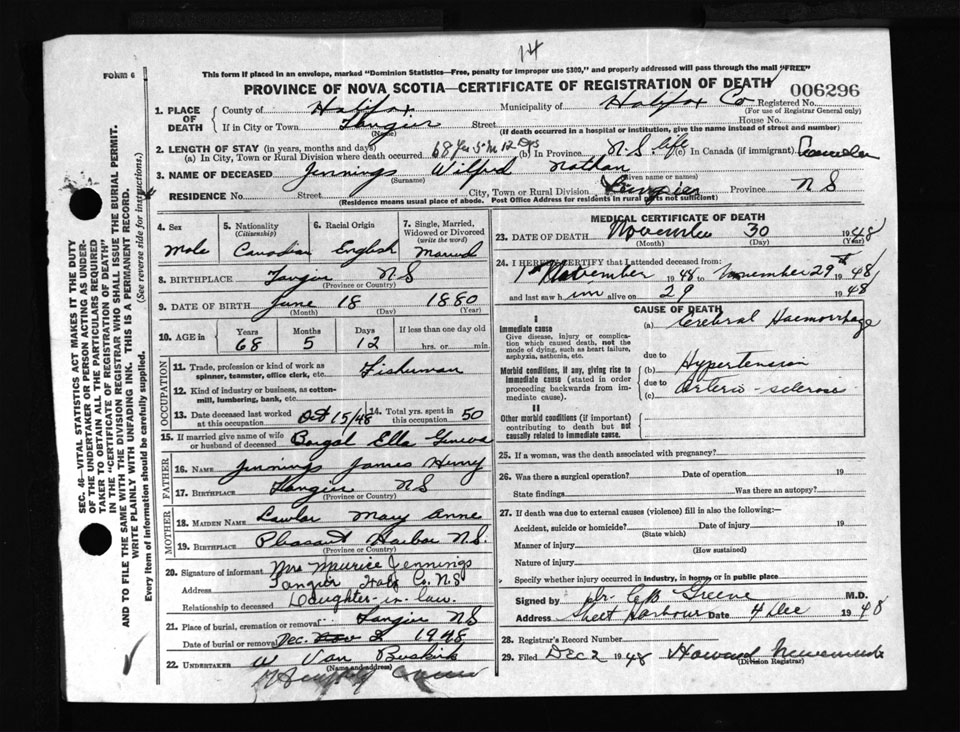 14
FORM 6
This form if placed in an envelope, marked "Dominion Statistics—Free, penalty for improper use $300," and properly addressed will pass through the mail "FREE"
PROVINCE OF NOVA SCOTIA—CERTIFICATE OF REGISTRATION OF DEATH
006296
1. PLACE OF DEATH County of Halifax Municipality of Halifax Co Registered No.
(For use of Registrar General only)
If in City or Town Tangier Street House No.
(Name) (If death occurred in a hospital or institution, give the name instead of street and number)
2. LENGTH OF STAY (in years, months and days)
(a) In City, Town or Rural Division where death occurred 68 Yrs 5 M 12 Dys (b) In Province N.S. life (c) In Canada (if immigrant)
3. NAME OF DECEASED Jennings Wilfred Nathan
(Surname) (Given name or names)
RESIDENCE No. Street City, Town or Rural Division Tangier Province N S
(Residence means usual place of abode. Post Office Address for residents in rural parts not sufficient)
4. Sex 5. Nationality (Citizenship) 6. Racial Origin 7. Single, Married, Widowed or Divorced (write the word)
Male Canadian English Married
8. BIRTHPLACE Tangier N S
(Province or Country)
9. DATE OF BIRTH June 18 1880
(Month) (Day) (Year)
10. AGE in Years Months Days If less than one day old
68 5 12 hrs. or min.
OCCUPATION
11. Trade, profession or kind of work as spinner, teamster, office clerk, etc. Fisherman
12. Kind of industry or business, as cotton-mill, lumbering, bank, etc.
13. Date deceased last worked at this occupation Oct 15/48 14. Total yrs. spent in this occupation 50
15. If married give name of wife or husband of deceased Boygal Ella Geneva
FATHER
16. Name Jennings James Henry
17. Birthplace Tangier N S
(Province or Country)
MOTHER
18. Maiden Name Lawlor Mary Anne
19. Birthplace Pleasant Harbor N.S.
(Province or Country)
20. Signature of informant Mrs Maurice Jennings
Address Tangier Halfx Co. N.S
Relationship to deceased Daughter-in-law.
21. Place of burial, cremation or removal Tangier N S
Date of burial or removal Dec. Nov 1948
22. UNDERTAKER W Van Buskirk
(Name and address)
MEDICAL CERTIFICATE OF DEATH
23. DATE OF DEATH November 30 1948
(Month) (Day) (Year)
24. I HEREBY CERTIFY that I attended deceased from:
1st November 1948 to November 29th 1948
and last saw h im alive on 29 1948
CAUSE OF DEATH
I
Immediate cause
Give disease, injury or complication which caused death, not the mode of dying, such as heart failure, asphyxia, asthenia, etc.
(a) Cerebral Haemorrhage
due to
Morbid conditions, if any, giving rise to immediate cause (stated in order proceeding backwards from immediate cause).
(b) Hypertension
due to
(c) Arterio-sclerosis
II
Other morbid conditions (if important) contributing to death but not causally related to immediate cause.
25. If a woman, was the death associated with pregnancy?
26. Was there a surgical operation? Date of operation 19
State findings Was there an autopsy?
27. If death was due to external causes (violence) fill in also the following:—
Accident, suicide or homicide? Date of injury 19
(State which)
Manner of injury
(How sustained)
Nature of injury
Specify whether injury occurred in industry, in home, or in public place
Signed by Dr. C B Greene M.D.
Address Sheet Harbour Date 4 Dec 1948
28. Registrar's Record Number
29. Filed DEC 2 1948 Howard
(Division Registrar)
SEC. 46—VITAL STATISTICS ACT MAKES IT THE DUTY
OF THE UNDERTAKER OR PERSON ACTING AS UNDERTAKER
TO OBTAIN ALL THE PARTICULARS REQUIRED
IN THE "CERTIFICATE OF REGISTRATION OF DEATH"
AND TO FILE THE SAME WITH THE DIVISION REGISTRAR WHO SHALL ISSUE THE BURIAL PERMIT.
WRITE PLAINLY WITH UNFADING INK. THIS IS A PERMANENT RECORD.
Every item of information should be carefully supplied. (See reverse side for instructions.)